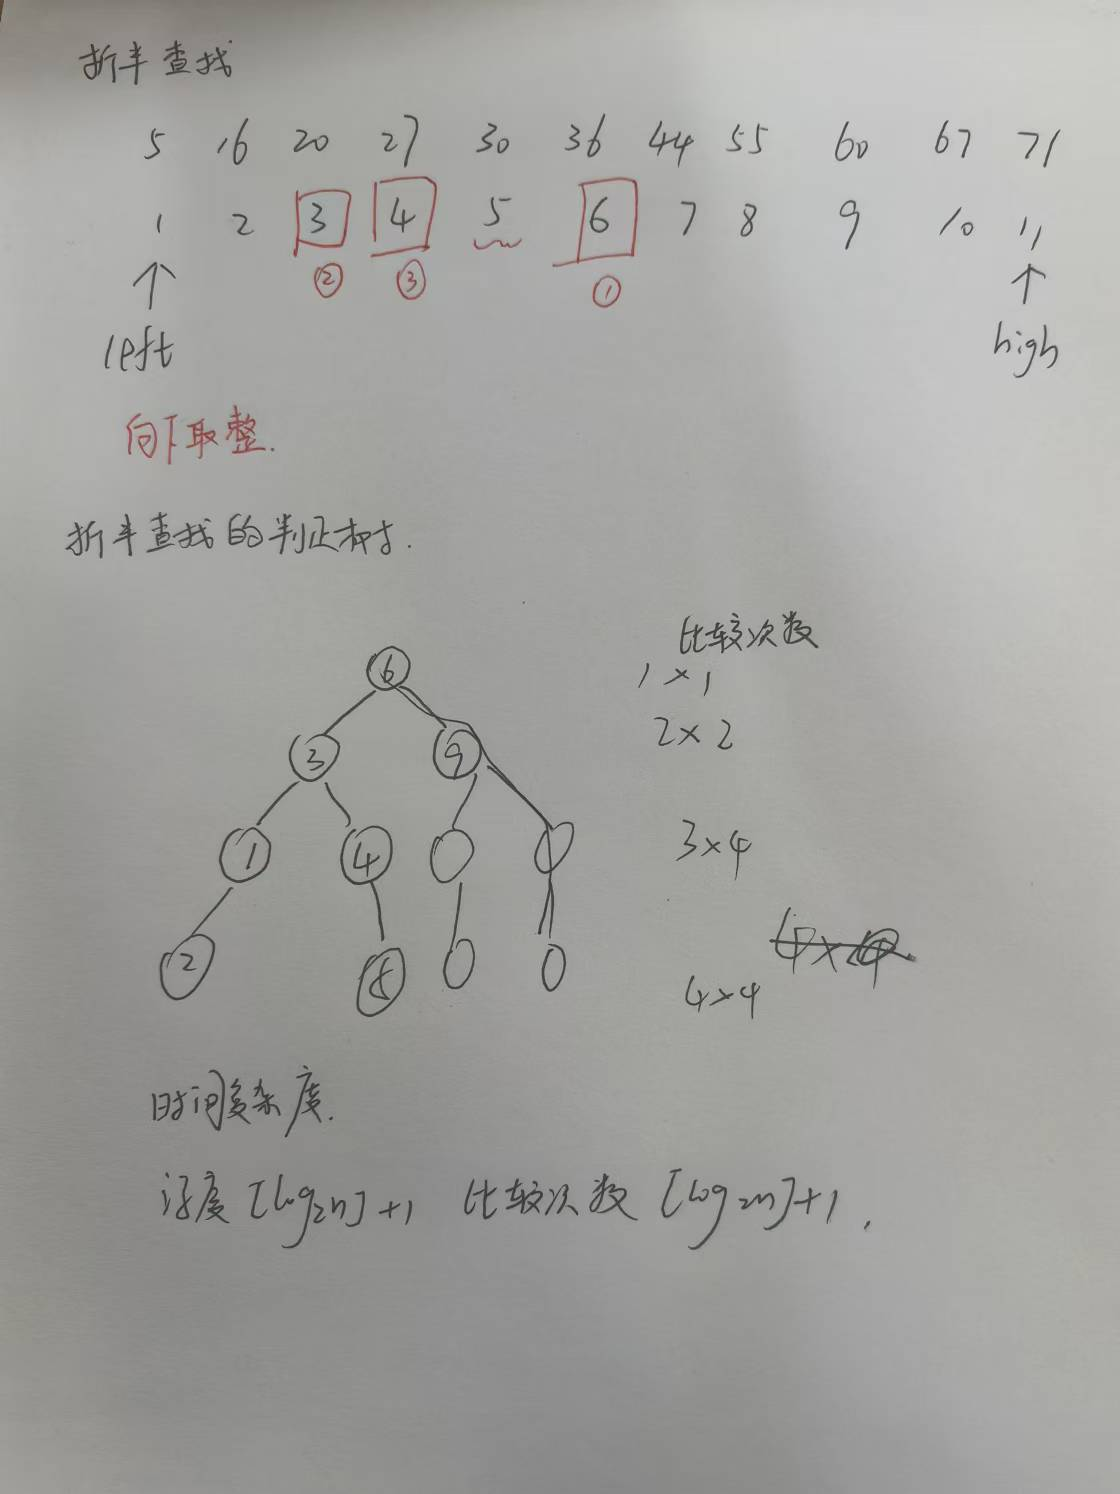 折半查找
5 16 20 27 30 36 44 55 60 67 71
1 2 3 4 5 6 7 8 9 10 11
② ③ ①
left high
向下取整.
折半查找的判定树.
比较次数
6
1×1
3 9
2×2
1 4
3×4
2 5
4×4
时间复杂度.
深度[log2n]+1 比较次数[log2n]+1.